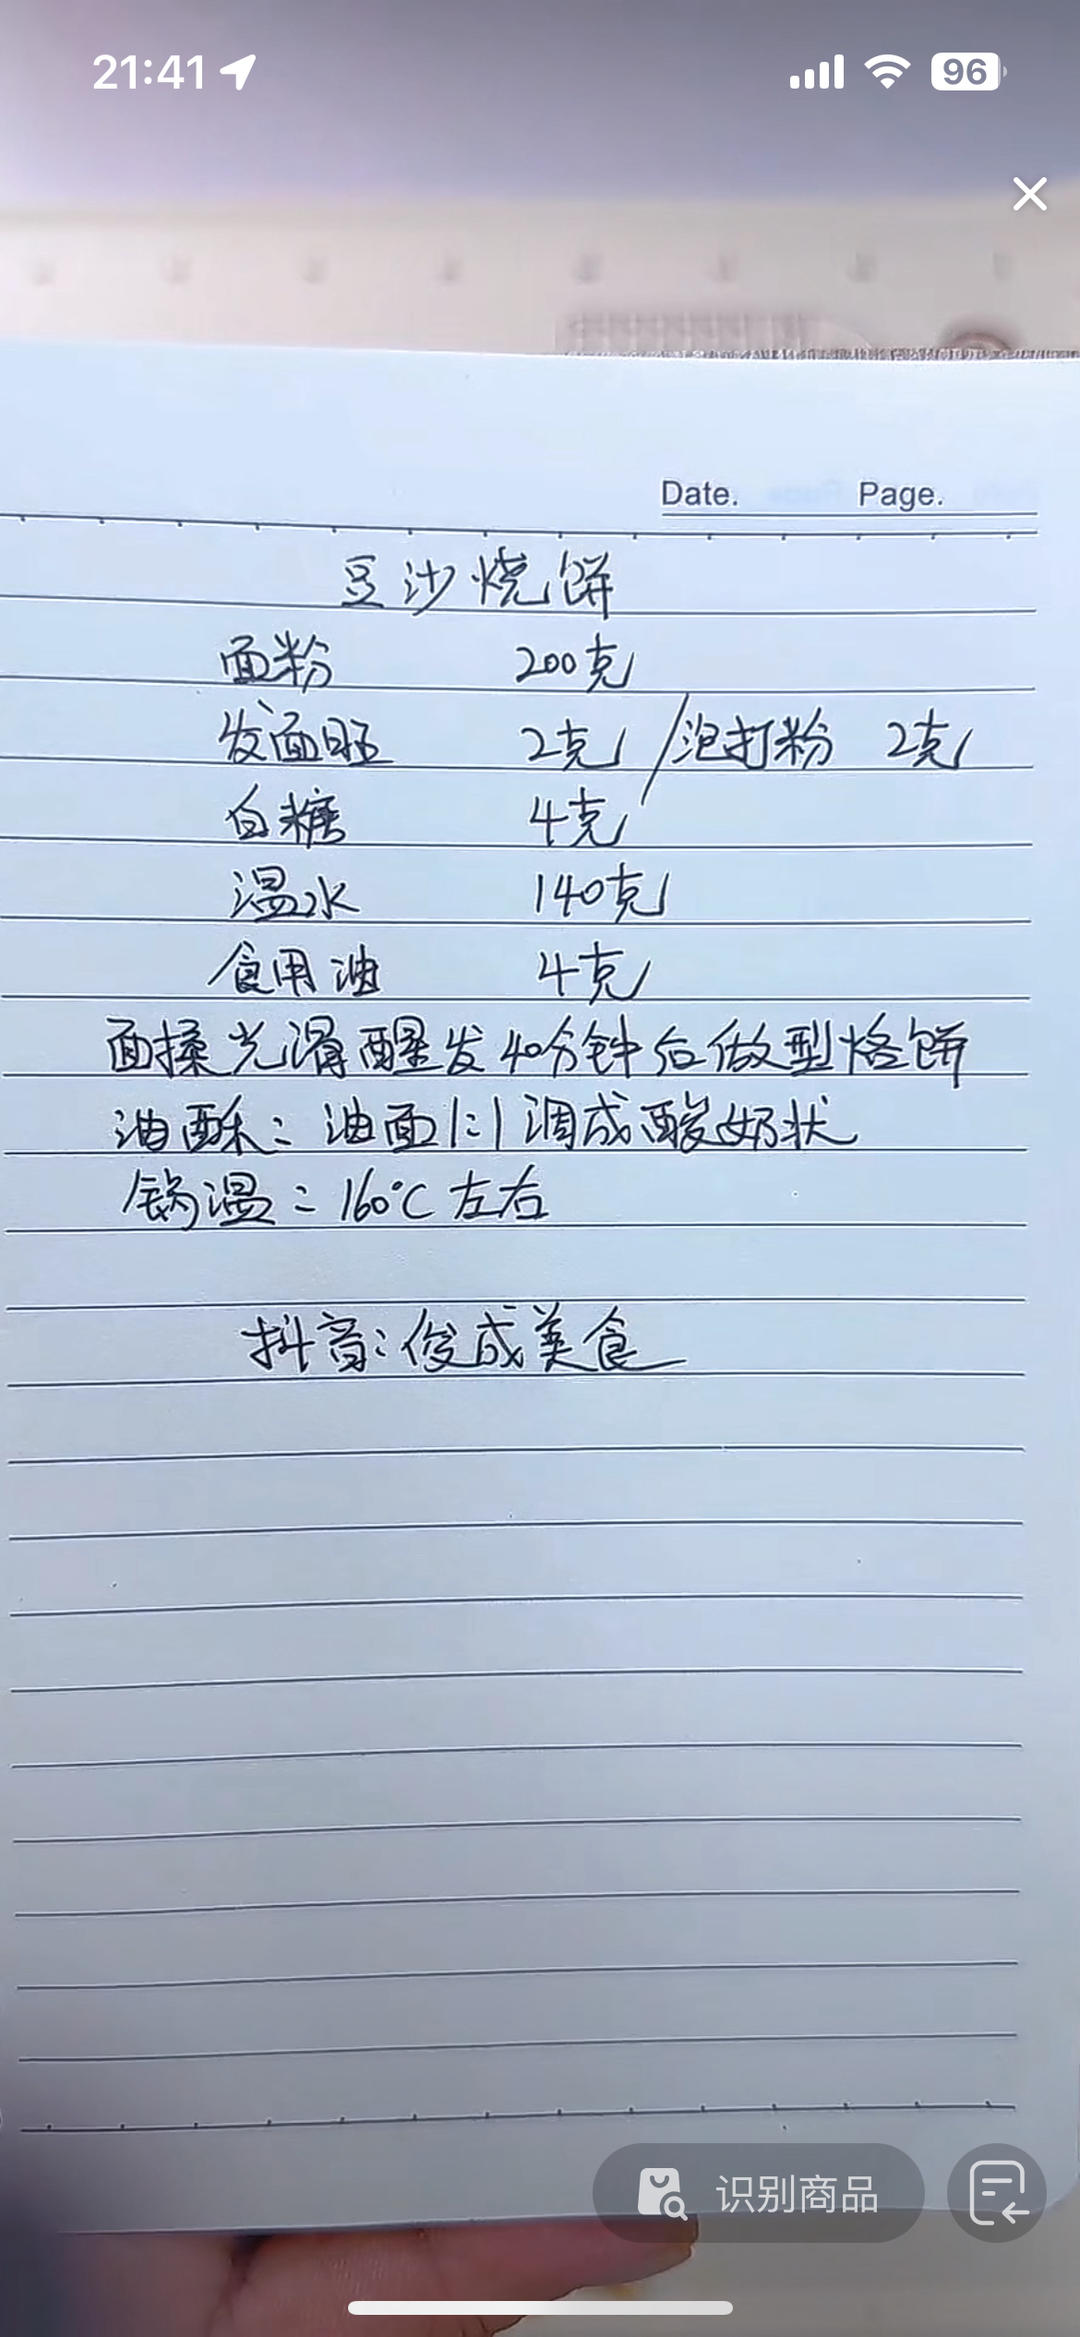 21:41
96
Date. Page.
豆沙烧饼
面粉 200克
发面旺 2克/泡打粉 2克
白糖 4克
温水 140克
食用油 4克
面揉光滑醒发40分钟后做型烙饼
油酥：油面1:1调成酸奶状
锅温：160℃左右
抖音：俊成美食
识别商品